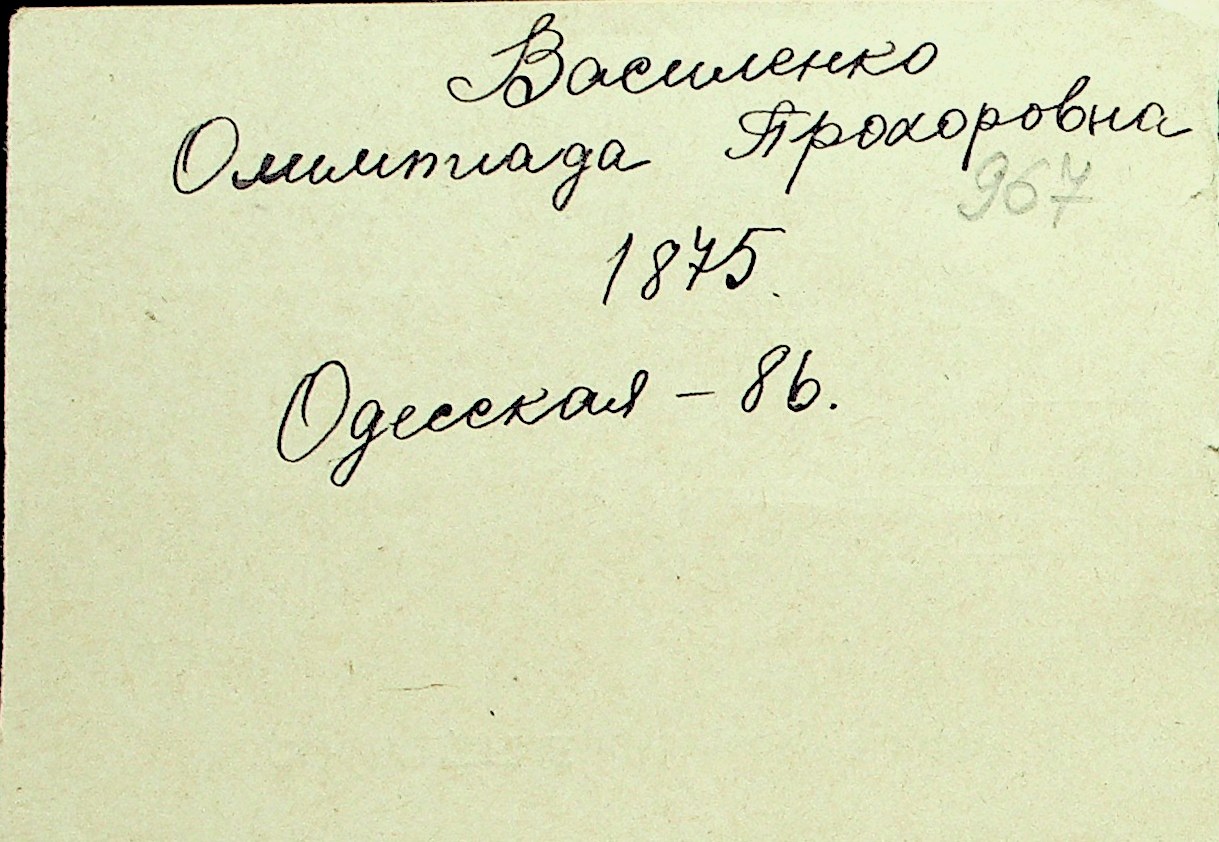 Василенко
Олимпиада Прохоровна
967
1875.
Одесская - 86.